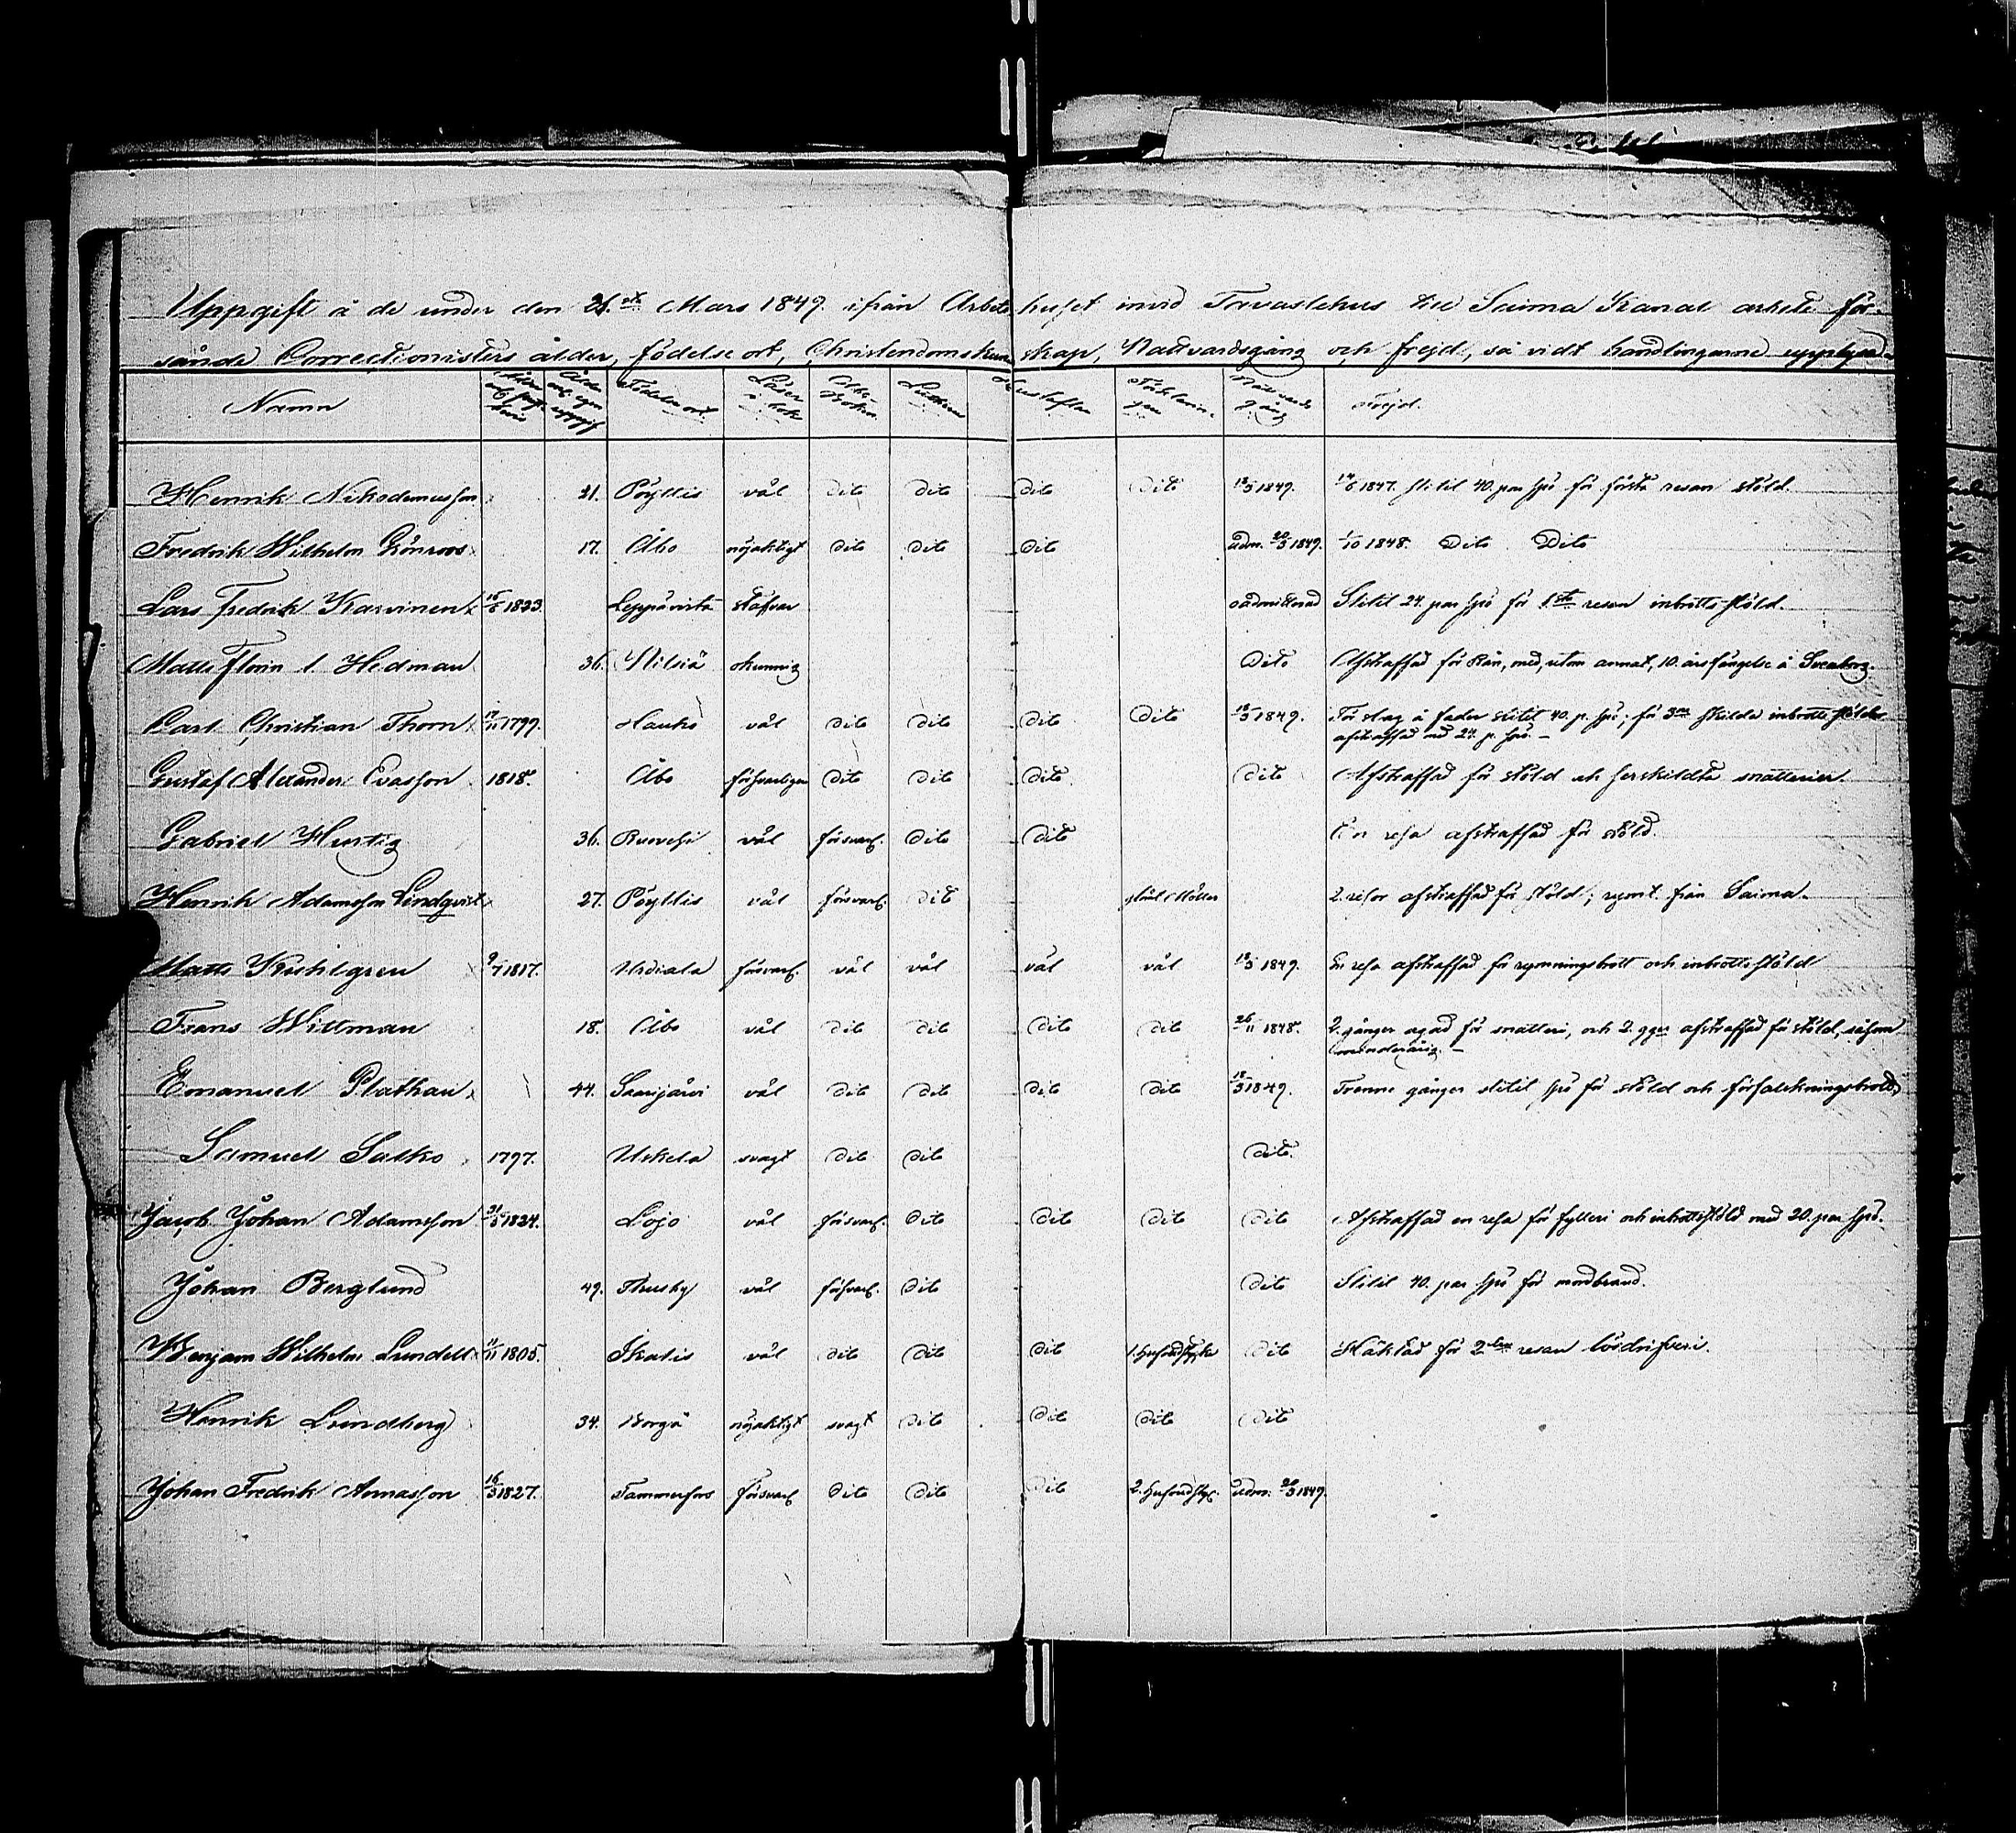 Uppgift å de under den 21.sta Mars 1849. ifrån Arbetshuset invid Tavastehus till Saima Kanal arbete för-
sände Correctionisters ålder, födelse ort, Christendomskunskap, Nattvardsgång och frejd, så vidt handlingarne upplysa.
Namn Ålder Ålder enl. egen uppgift Födelse ort Läser i bok Abc-boken Lutheri Hustaflan Förklaringen Nattvards gång Frejd.
Henrik Nikodemusson 21. Pöyttis väl dito dito dito dito 18/3 1849. 14/6 1847. slitit 40. par spö för första resan stöld.
Fredrik Wilhelm Grönroos 17. Åbo nöjaktigt dito dito dito adm. 20/3 1849. 1/10 1848. Dito Dito
Lars Fredrik Karvinen 15/5 1823. Leppävirta stafvar oadmitterad Slitit 24. par spö för 1.sta resan inbrotts stöld.
Matts Florin l. Hedman 36. Nilsiä okunnig Dito Afstraffad för Rån, med, utom annat, 10. års fängelse å Sveaborg.
Carl Christian Thorn 17/11 1799. Hauho väl dito dito dito dito 18/3 1849. För slag å fader slitit 40. p. spö; för 3ne skilda inbrotts stölder
afstraffad med 24. p. spö. —
Gustaf Alexander Evasson 1818. Åbo försvarligen dito dito dito dito Afstraffad för stöld och serskildta snatterier.
Gabriel Hurtig 36. Ruovesi väl försvarl. dito dito En resa afstraffad för stöld.
Henrik Adamsson Lindqvist 27. Pöyttis väl försvarl. dito 2. resor afstraffad för stöld; rymt från Saima.
Matts Kuhlgren 9/7 1817. Urdiala försvarl. väl väl väl väl 18/3 1849. En resa afstraffad för rymningsbrott och inbrotts stöld
Frans Wittman 18. Åbo väl dito dito dito dito 26/11 1848. 2. gånger agad för snatteri, och 2. ggr afstraffad för stöld, såsom
minderårig. —
Emanuel Plathan 44. Saarijärvi väl dito dito dito dito 18/3 1849. Trenne gånger slitit spö för stöld och förfalskningsbrott.
Samuel Salko 1797. Uskela svagt dito dito dito.
Jacob Johan Adamsson 31/3 1824. Lojo väl försvarl. dito dito dito dito Afstraffad en resa för fylleri och inbrottsstöld med 20. par spö.
Johan Berglund 49. Thusby väl försvarl. dito dito Slitit 40. par spö för mordbrand.
Benjam Wilhelm Lundell 11/11 1805. Ikalis väl dito dito dito 1. hufvudstycke dito Häktad för 2.dra resan lösdrifveri.
Henrik Lundberg 34. Borgå nöjaktigt svagt dito dito dito dito
Johan Fredrik Annasson 16/3 1827. Tammerfors försvarl. dito dito dito 2. hufvudstyc. adm. 20/3 1849.